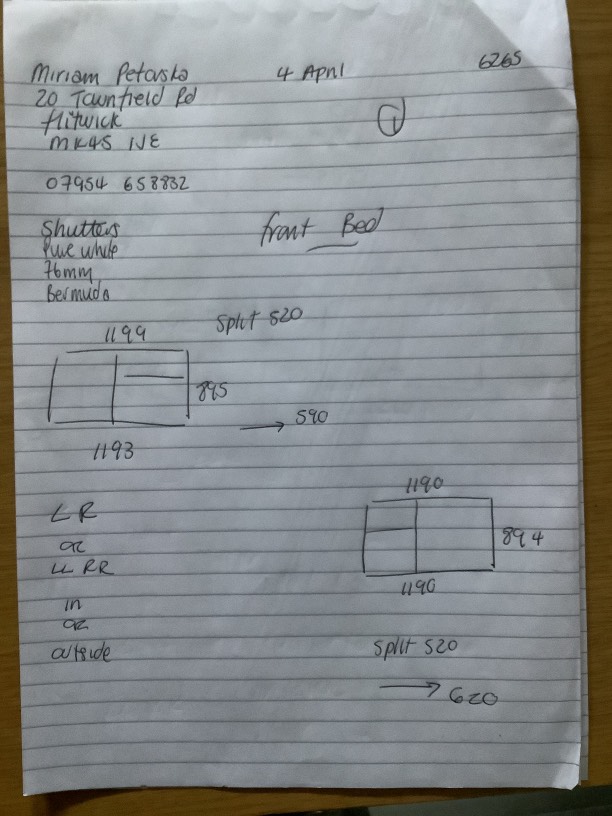 Miriam Petovska 4 April 6265
20 Townfield Rd
flitwick
MK45 1JE
1
07954 658832
Shutters front Bed
Pure white
76mm
Bermuda
Split 520
1199
895
590
1193
1190
LR
894
or
LL RR
1190
in
or
outside
Split 520
620